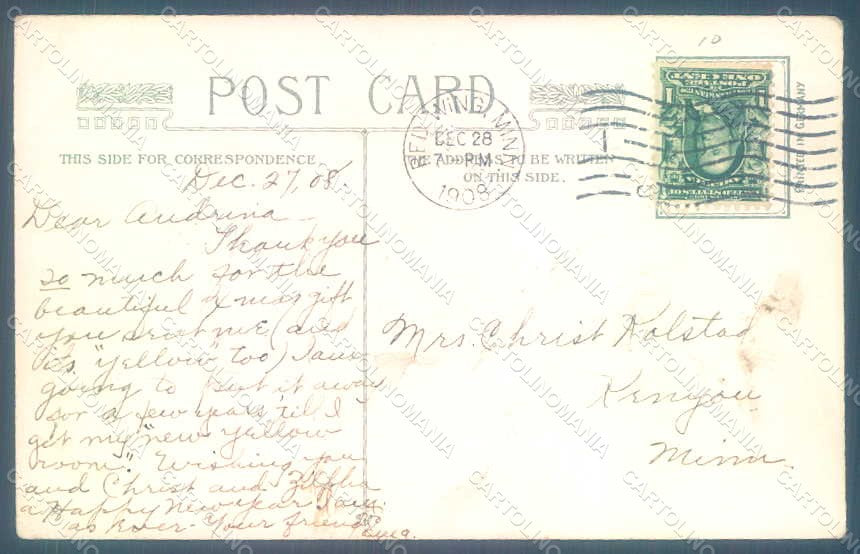 10
POST CARD
THIS SIDE FOR CORRESPONDENCE
THE ADDRESS TO BE WRITTEN
ON THIS SIDE.
RED WING, MINN.
DEC 28
7 PM
1908
PRINTED IN GERMANY
Dec. 27, 08
Dear Andrina
Thank you
so much for the
beautiful Xmas gift
you sent me (and
its "yellow" too) I am
going to put it away
for a few years 'till I
get my "new yellow
room". Wishing you
and Christ and Zilpha
a Happy New Year I am
as Ever- Your friend
Mrs. Christ Kolstad
Kenyon
Minn.
CARTOLINOMANIA